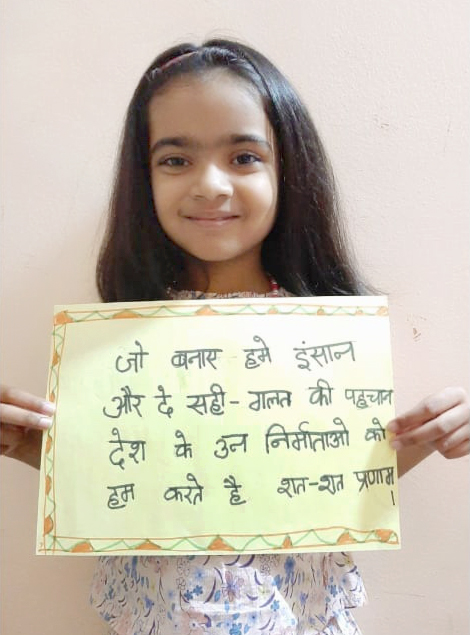 जो बनाए हमे इंसान
और दे सही - गलत की पहचान
देश के उन निर्माताओ को
हम करते है शत-शत प्रणाम।